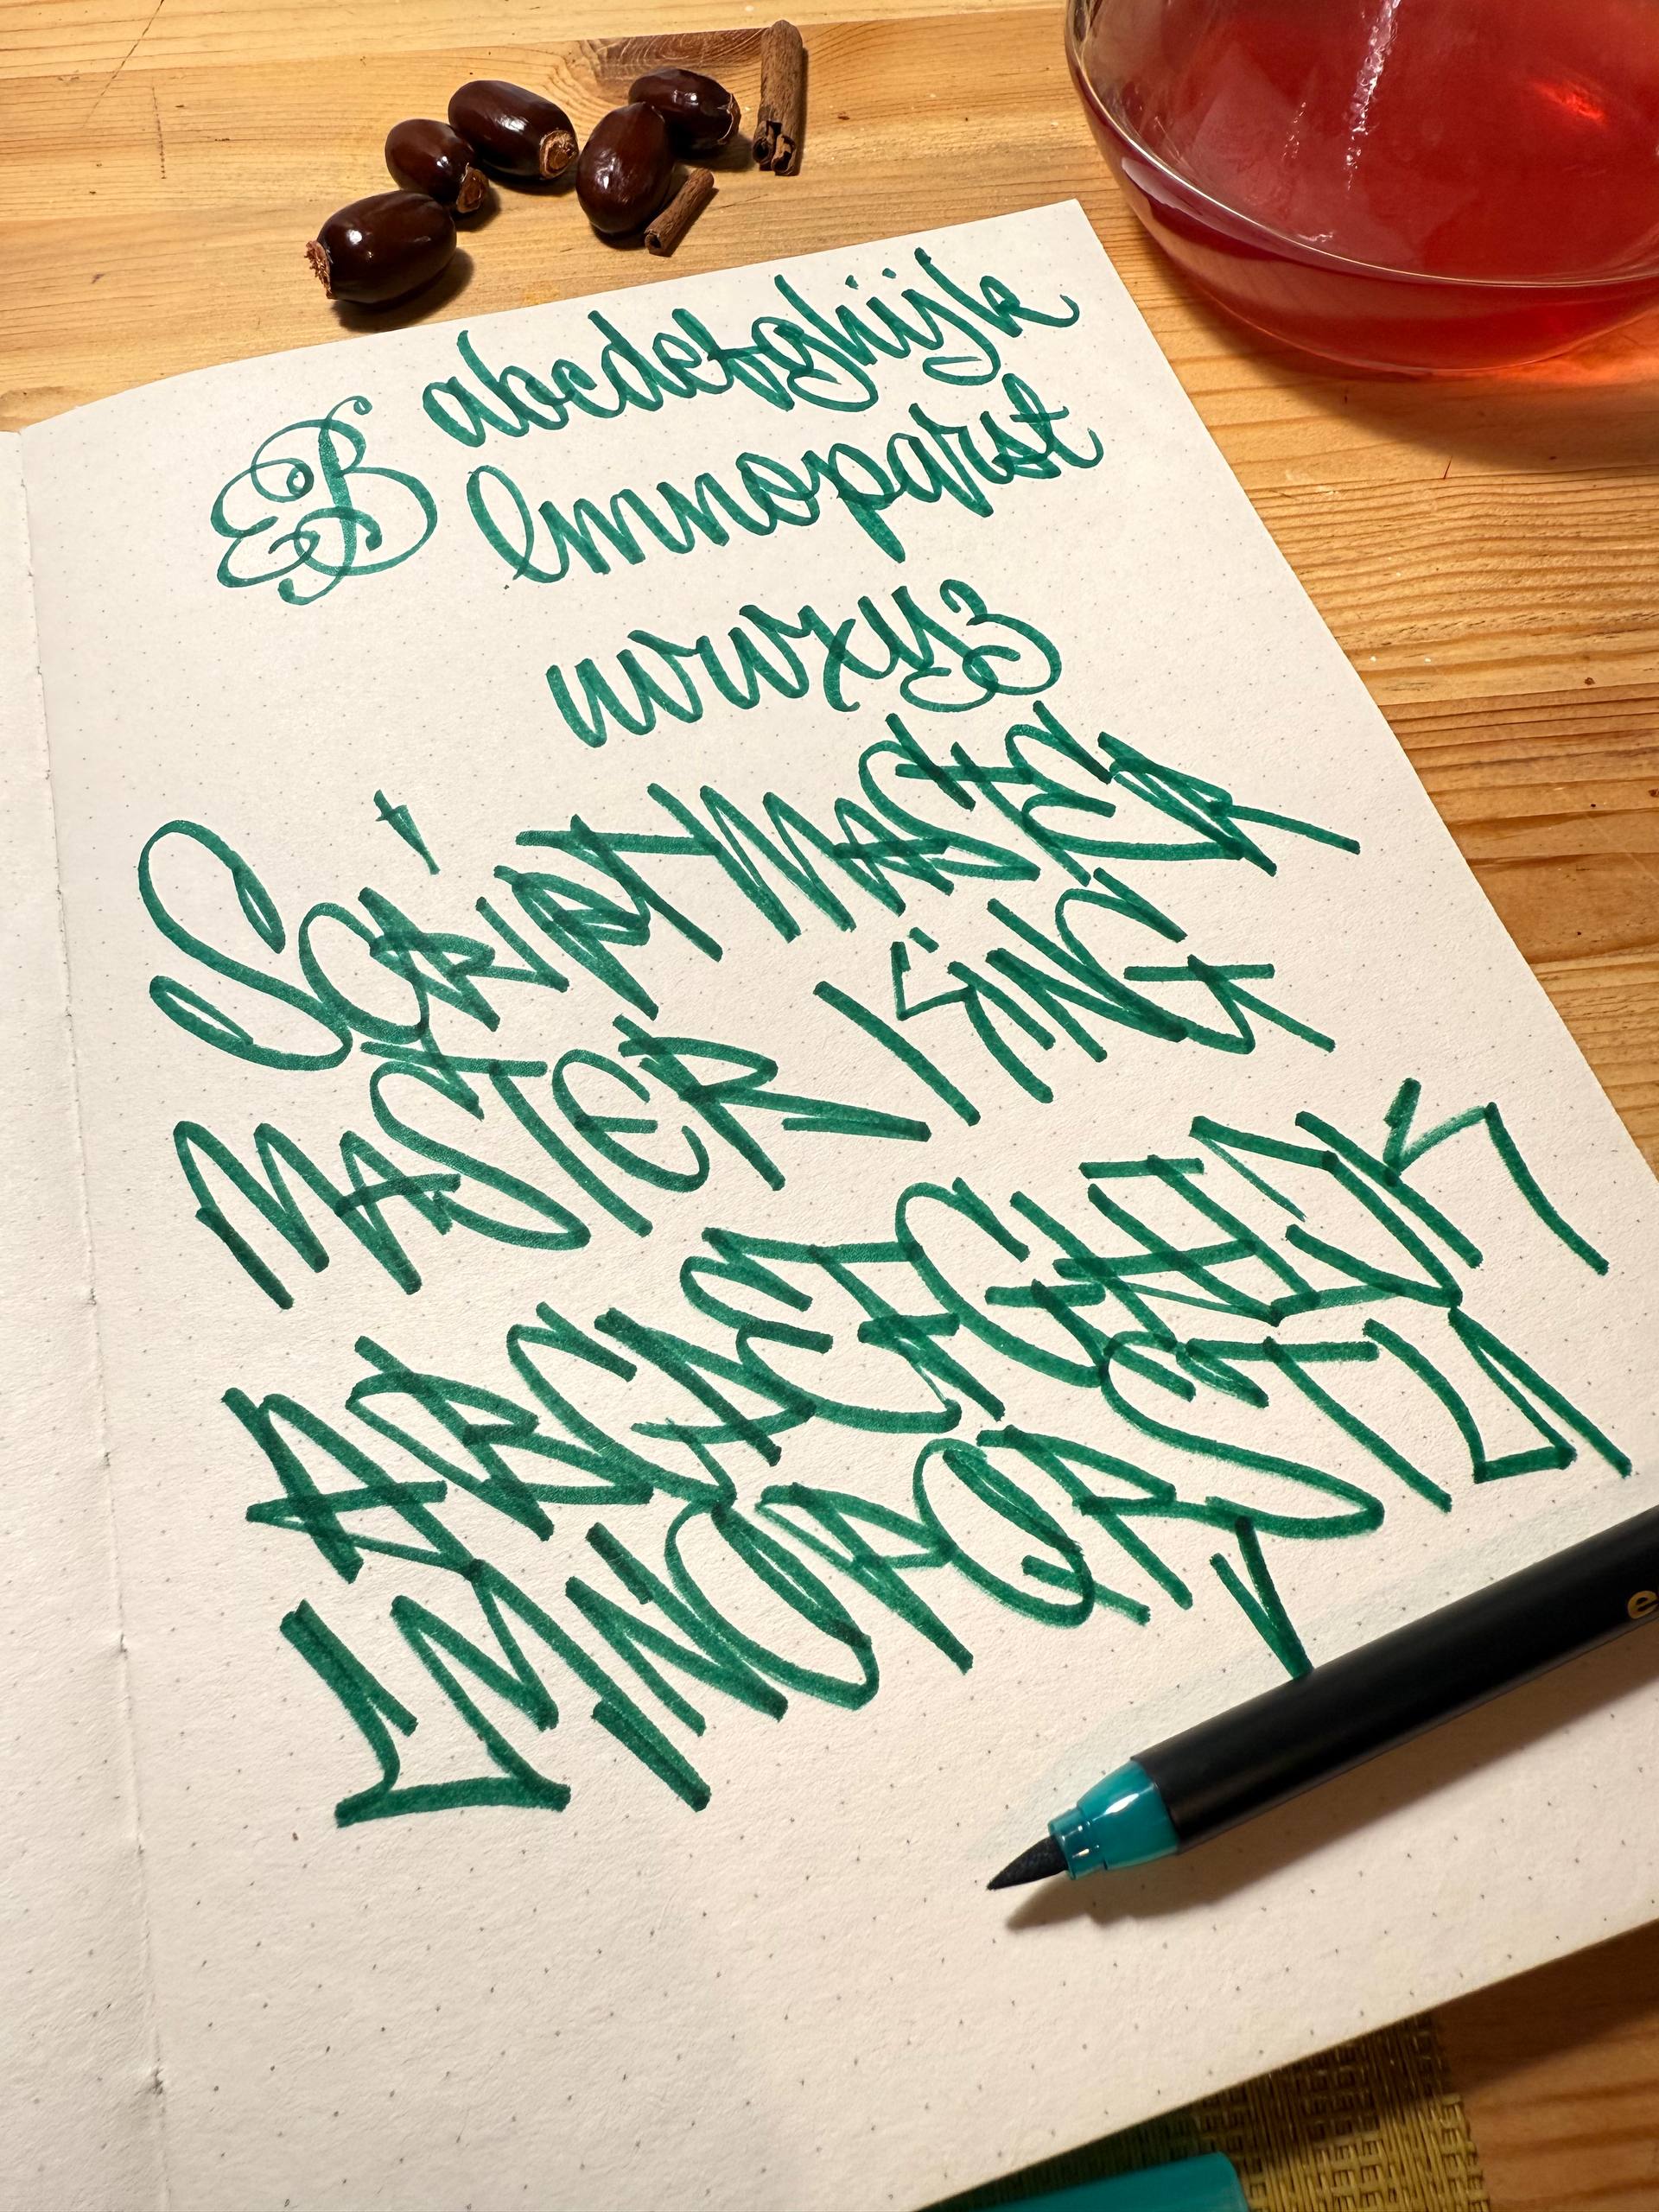 B abcdefghijk
lmnopqrst
uvwxyz
SCRIPT MASTER
MASTER KING
ABCDEFGHIJK
LMNOPQRSTU
V
e